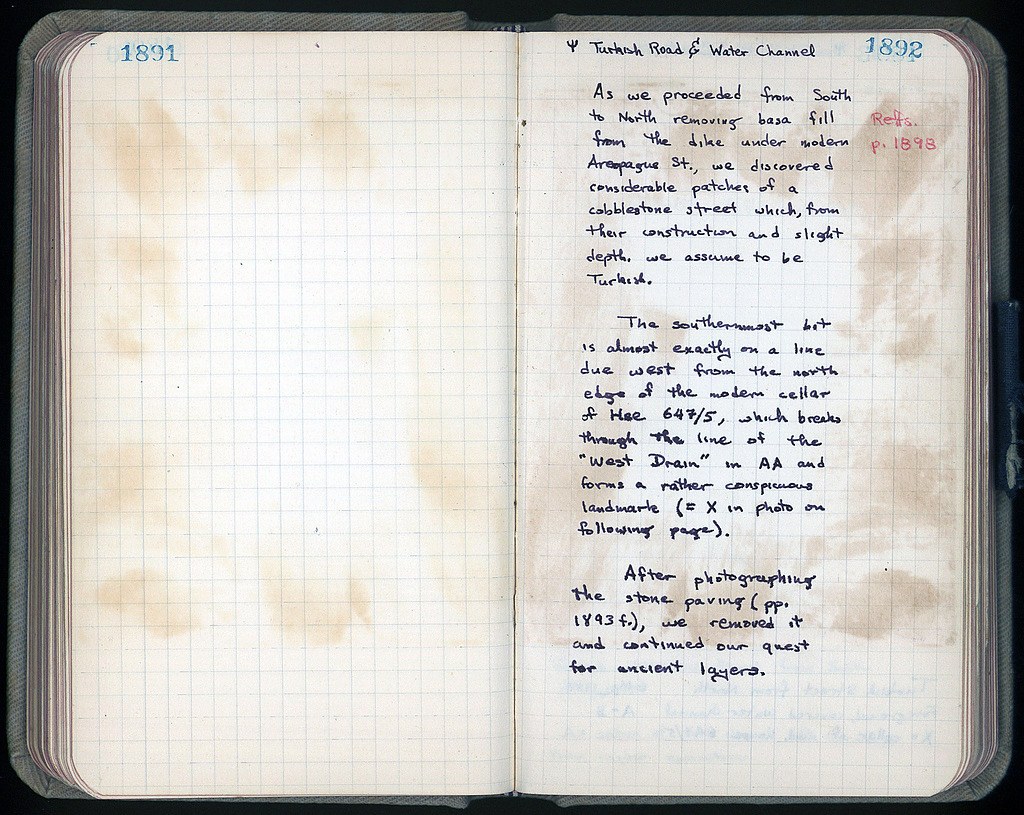 1891
1892
Ψ Turkish Road & Water Channel
As we proceeded from South
to North removing basa fill
from the dike under modern
Areopagus St., we discovered
considerable patches of a
cobblestone street which, from
their construction and slight
depth, we assume to be
Turkish.
Reffs.
p. 1898
The southernmost bit
is almost exactly on a line
due west from the north
edge of the modern cellar
of Hse 647/5, which breaks
through the line of the
"West Drain" in AA and
forms a rather conspicuous
landmark (= X in photo on
following page).
After photographing
the stone paving (pp.
1893 f.), we removed it
and continued our quest
for ancient layers.